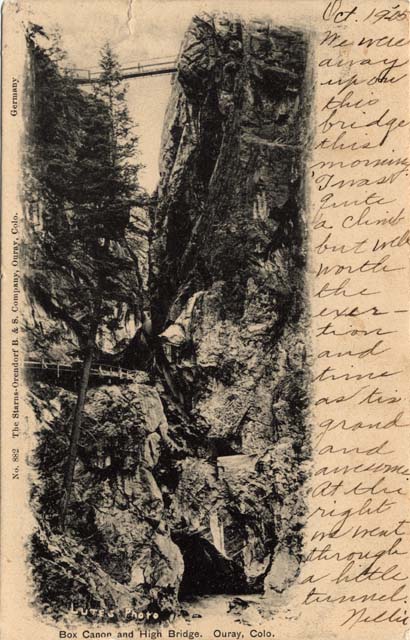 Oct. 1905
We were
away
up on
this
bridge
this
morning.
'Twas
quite
a climb
but well
worth
the
exer-
tion
and
time
as 'tis
grand
and
awesome.
At the
right
we went
through
a little
tunnel.
Nellie
No. 882 The Starns-Orendorf B. & S. Company, Ouray, Colo. Germany
LUTES PHOTO
Box Canon and High Bridge. Ouray, Colo.